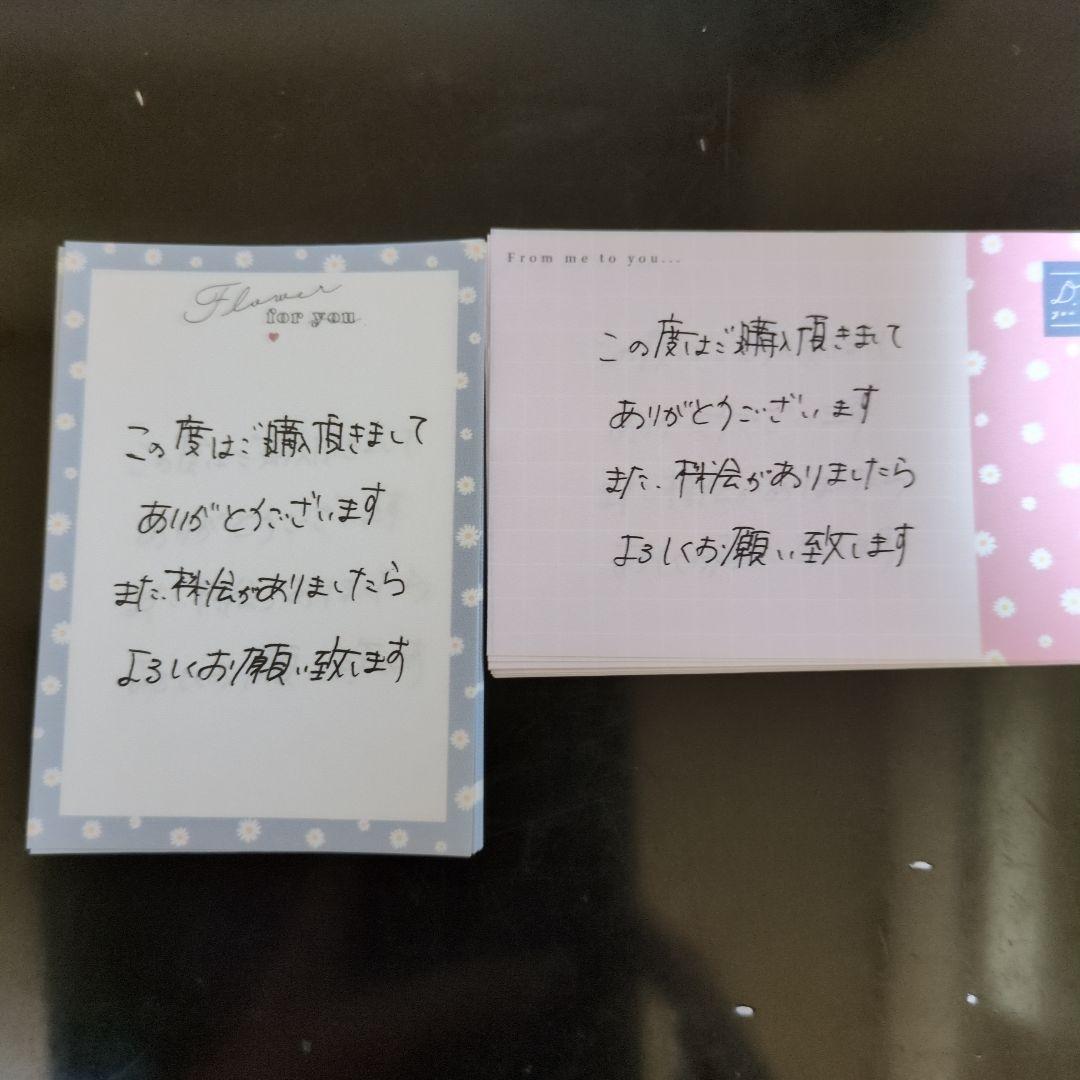 Flower
for you
この度はご購入頂きまして
ありがとうございます
また、機会がありましたら
よろしくお願い致します
From me to you...
この度はご購入頂きまして
ありがとうございます
また、機会がありましたら
よろしくお願い致します